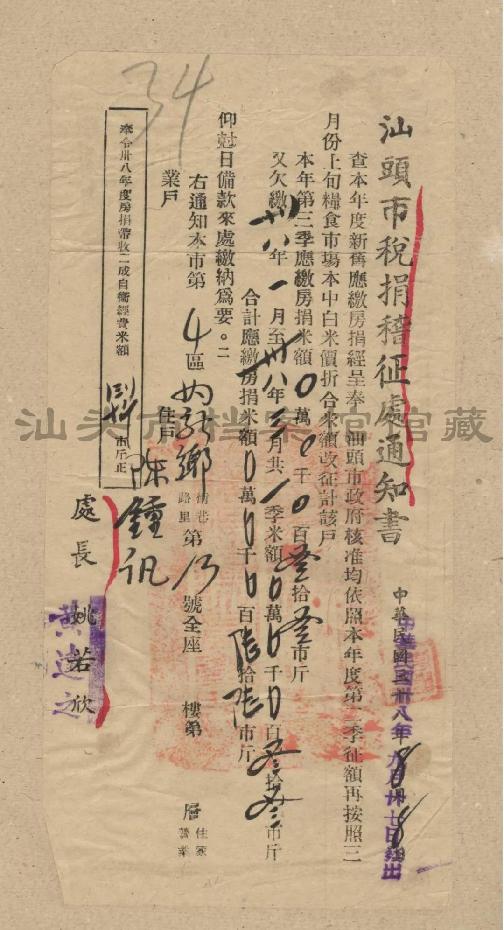 34
汕頭市稅捐稽征處通知書
查本年度新舊應繳房捐經呈奉 汕頭市政府核准均依照本年度第一季征額再按照三
月份上旬糧食市場本中白米價折合米額改征計該戶
本年第三季應繳房捐米額0萬0千0百叁拾叁市斤
又欠繳卅八年一月至卅八年三月共1季米額0萬0千0百叁拾叁市斤
合計應繳房捐米額0萬0千0百陸拾陸市斤
仰尅日備款來處繳納爲要。
右通知本市第4區
鄉
街巷
路里
第
號全座
樓第
層
住家
營業
業戶
住戶
陳鍾
奉令卅八年度房捐帶收二成自衛經費米額
市斤正
處長
姚若欣
中華民國
卅八年
汕头市档案馆馆藏